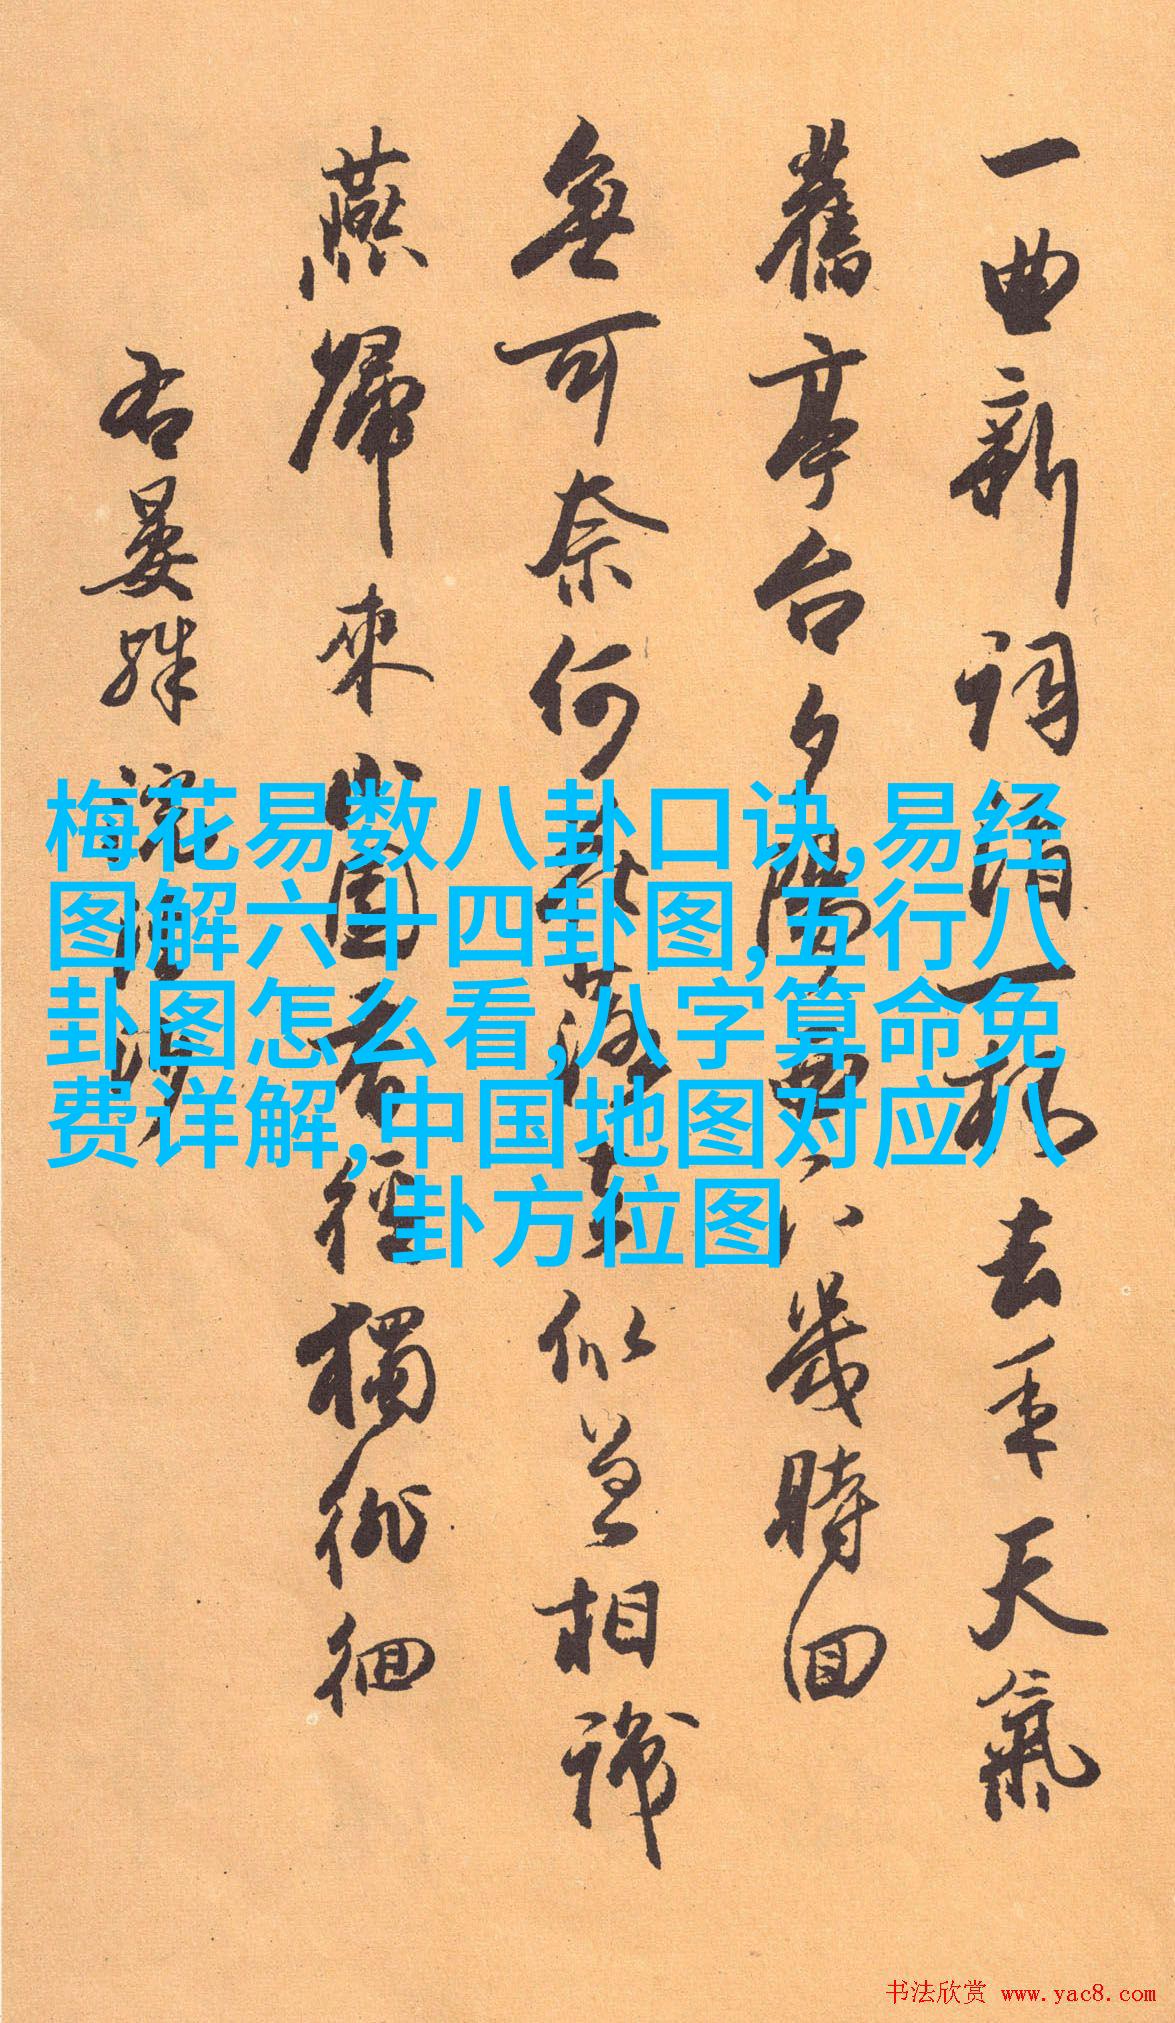 一曲新詞酒一杯去年天氣
舊亭台夕陽西下幾時回
無可奈何花落去似曾相識
燕歸來小園香徑獨徘徊
右晏殊浣溪沙
梅花易数八卦口诀,易经
图解六十四卦图,五行八
卦图怎么看,八字算命免
费详解,中国地图对应八
卦方位图
书法欣赏 www.yac8.com